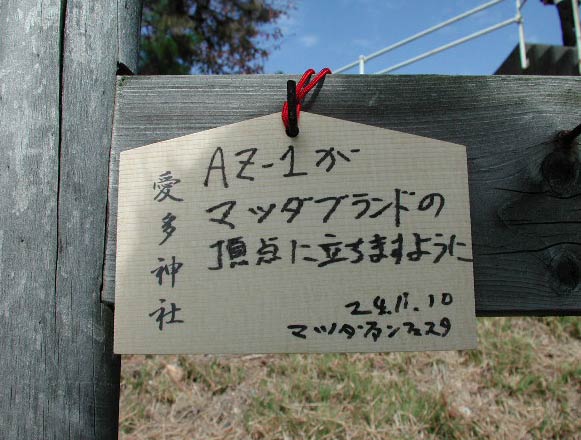 AZ-1が
マツダブランドの
頂点に立ちますように
24.11.10
マツダファンフェスタ
愛多神社